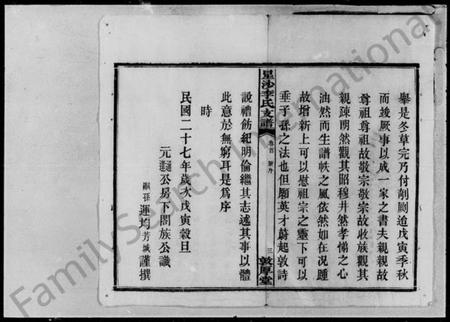 舉是冬草完乃付剞劂迨戊寅季秋
而竣厥事以成一家之書夫親親故
尊祖尊祖故敬宗敬宗故收族觀其
親疎朗然觀其昭穆井然孝悌之心
油然而生譜帙之風依然如在況踵
故增新上可以慰祖宗之靈下可以
垂子孫之法也但願英才蔚起敦詩
說禮飭紀明倫繼其志述其事以體
此意於無窮耳是為序
時
民國二十七年歲次戊寅穀旦
元公房下闔族公議
嗣孫運均芳誠謹撰
星沙李氏支譜
卷首
序
三
敦厚堂
FamilySearch International